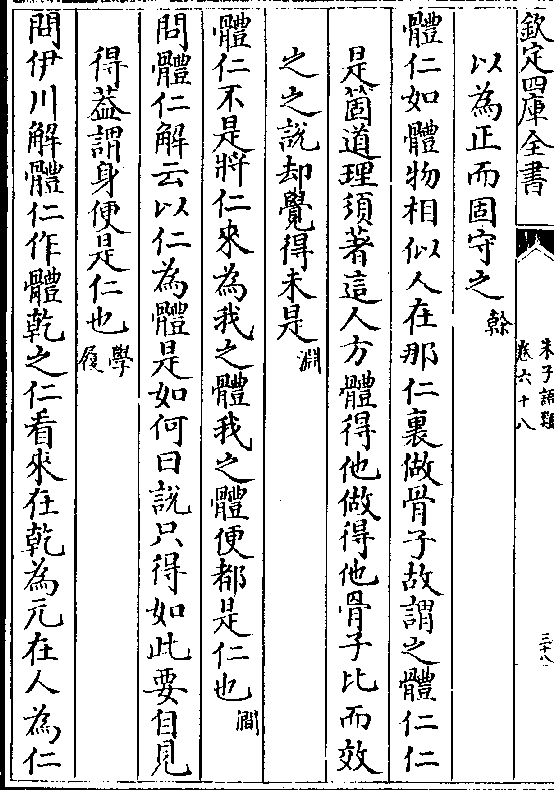 欽定四庫全書
朱子語類
卷六十八
三十八
以為正而固守之 榦
體仁如體物相似人在那仁裏做骨子故謂之體仁仁
是箇道理須著這人方體得他做得他骨子比而效
之之說却覺得未是 淵
體仁不是將仁來為我之體我之體便都是仁也 㽦
問體仁解云以仁為體是如何曰說只得如此要自見
得葢謂身便是仁也 學履
問伊川解體仁作體乾之仁看來在乾為元在人為仁